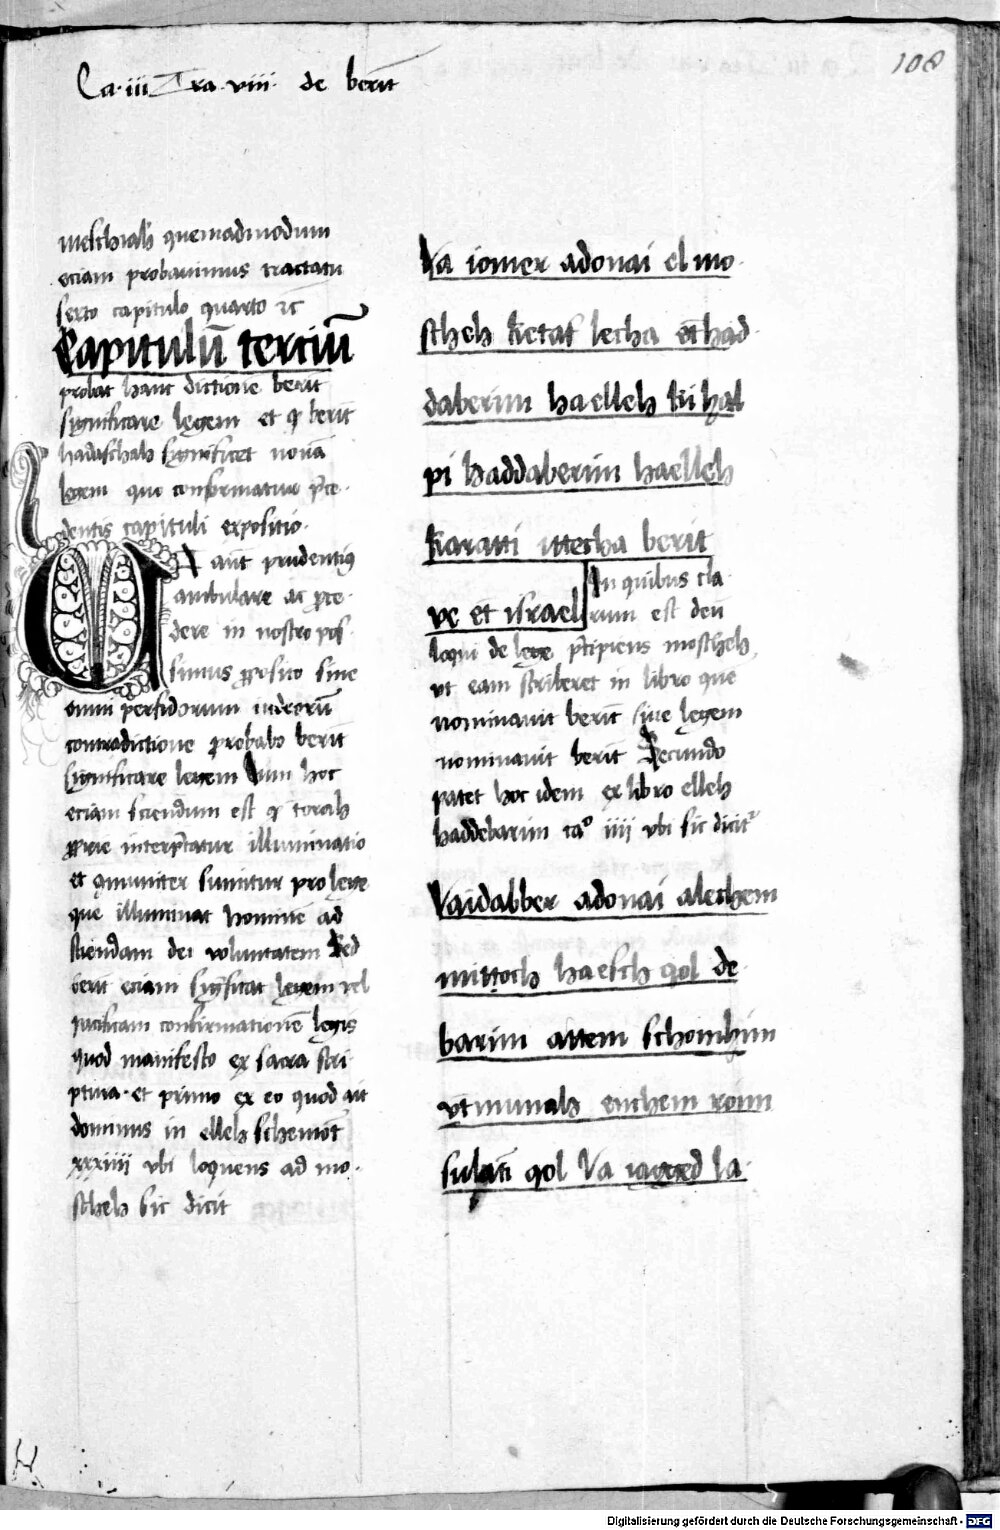 Ca. iii Tra. viii. de berit
108
meschiah quemadmodum
eciam probauimus tractatu
serto capitulo quarto ⁊c̄
Capitulū terciū
probat hanc dictionē berit
significare legem et ꝙ berit
hadaschah significet nouā
legem quo confirmatur p̄ce-
dentis capituli expositio.
Ut aut̄ prudentius
ambulare ac p̄ce-
dere in nostro pos-
simus ꝓposito sine
omni perfidorum iudeorū
contradictione probabo berit
significare legem Cum hoc
eciam sciendum est ꝙ torah
ꝓprie interp̄tatur illuminatio
et ꝯmuniter sumitur pro lege
que illuminat hominē ad
sciendam dei voluntatem Sed
berit eciam sign̄ficat legem vel
pacificam confirmationē legis
quod manifesto ex sacra scri-
ptura. et primo ex eo quod ait
dominus in elleh schemot
xxxiiii vbi loquens ad mo-
scheh sic dicit
Va iomer adonai el mo-
scheh kictaf lecha et had-
daberim haelleh ki hal
pi haddaberim haelleh
karatti ittecha berit
ve et israel In quibus cla-
rum est deū
loqui de lege p̄cipiens moscheh,
vt eam scriberet in libro quē
nominauit berit siue legem
nominauit berit Secundo
patet hoc idem ex libro elleh
haddebarim ca° iiii vbi sic dicit᷑
Vaidabber adonai alechem
mittoch haesch qol de-
barim attem schomhim
vtmunah enchem roim
sulati qol Va iagged la-
Digitalisierung gefördert durch die Deutsche Forschungsgemeinschaft - DFG